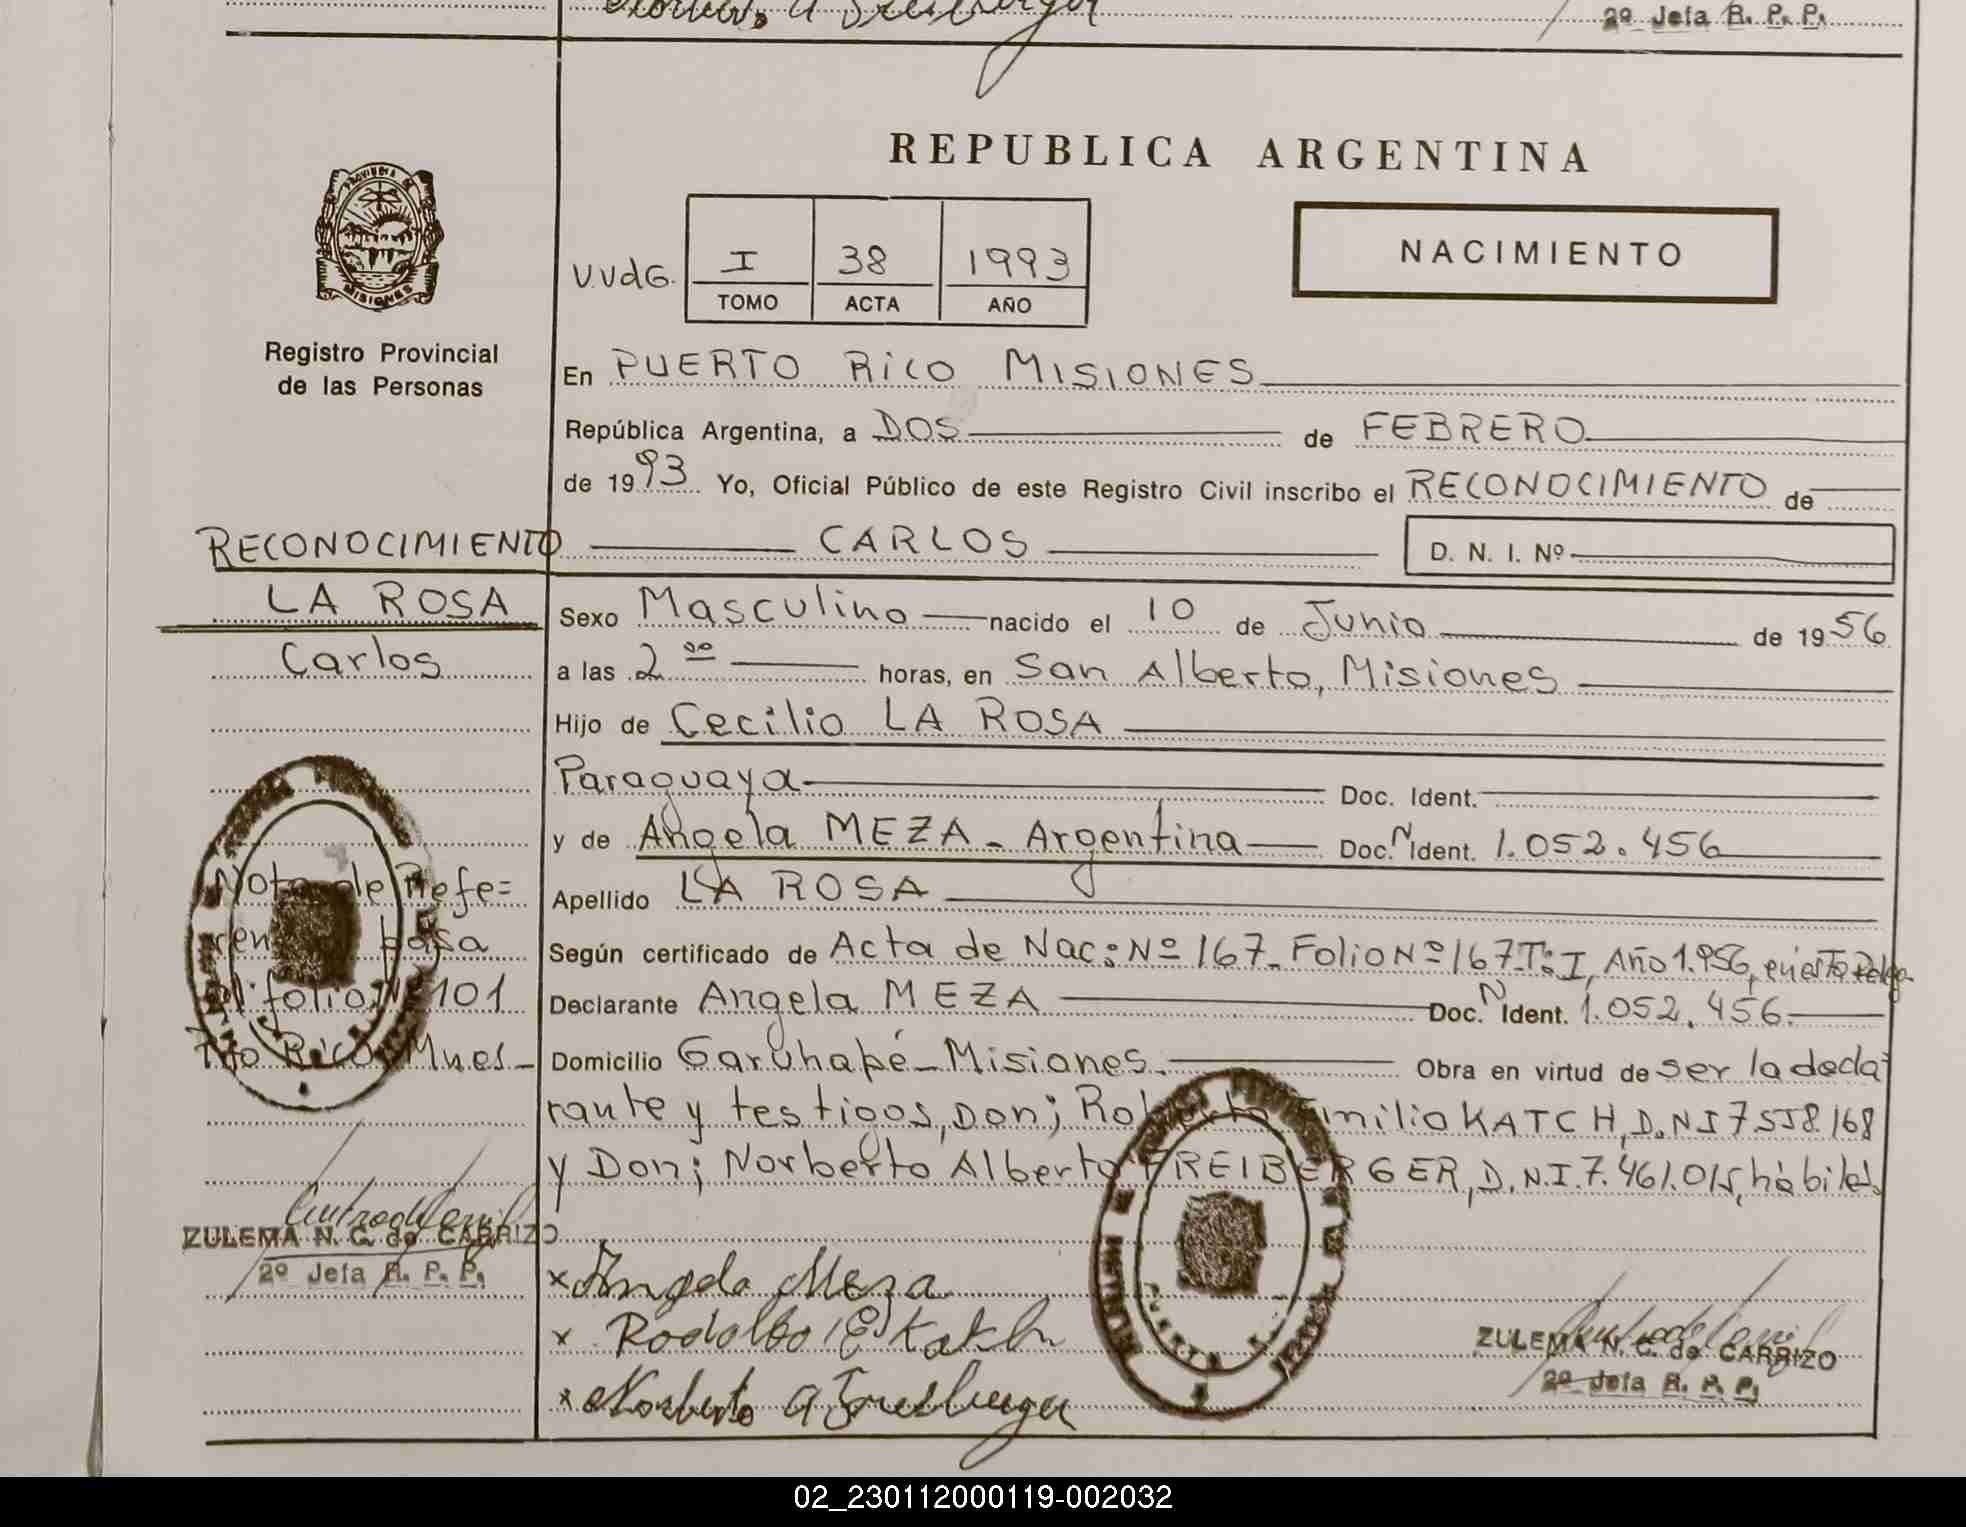 2º Jefa R. P. P.
REPUBLICA ARGENTINA
PROVINCIA DE
MISIONES
Registro Provincial
de las Personas
V.VdG.
I 38 1993
TOMO ACTA AÑO
NACIMIENTO
En PUERTO RICO MISIONES
República Argentina, a DOS de FEBRERO
de 1993 Yo, Oficial Público de este Registro Civil inscribo el RECONOCIMIENTO de
CARLOS D. N. I. Nº
RECONOCIMIENTO
LA ROSA
Carlos
Sexo Masculino nacido el 10 de Junio de 1956
a las 2 00 horas, en San Alberto, Misiones
Hijo de Cecilio LA ROSA
Paraguaya Doc. Ident.
y de Angela MEZA - Argentina Doc. N Ident. 1.052.456
Apellido LA ROSA
Según certificado de Acta de Nac: Nº 167 - Folio Nº 167 - Tº: I, Año 1.956, en esta
Declarante Angela MEZA Doc. N Ident. 1.052.456.
Domicilio Garuhapé - Misiones. Obra en virtud de ser la decla-
rante y testigos, Don; Emilio KATCH, D.N.I 7.558.168
y Don; Norberto Alberto FREIBERGER, D.N.I. 7.461.015, hábiles.
Nota de Refe=
pasa
folio 101
Pto Rico, Mnes -
ZULEMA N. C. de CARRIZO
2º Jefa R. P. P.
x Angela Meza
x Rodolfo E Katch
x Norberto A Freiberger
ZULEMA N. C. de CARRIZO
2º Jefa R. P. P.
02_230112000119-002032